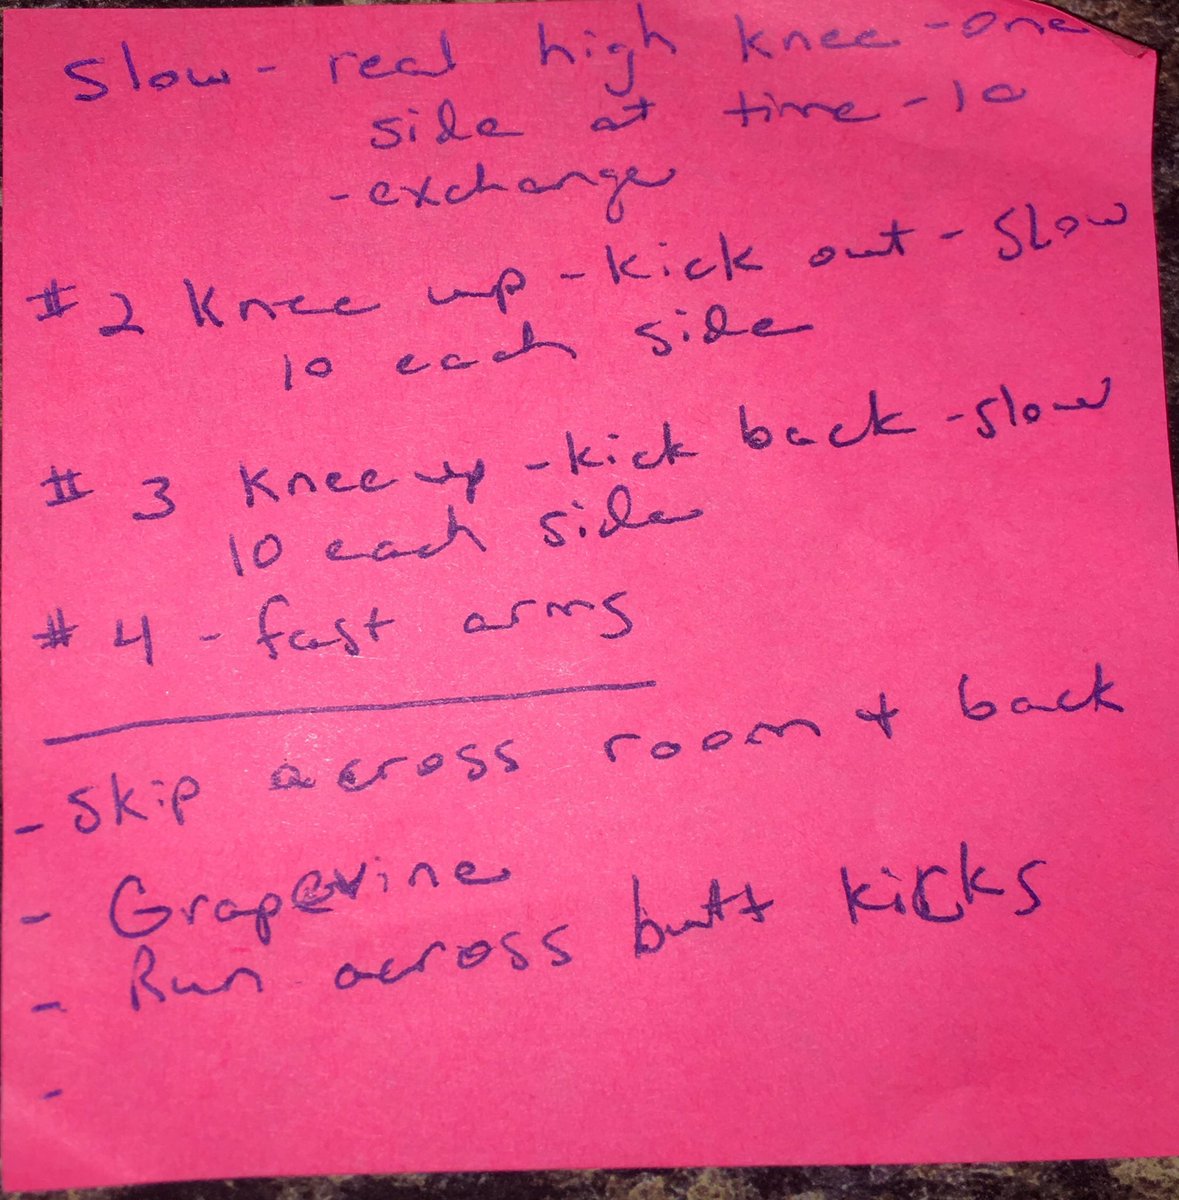 Slow - real high knee - one
side at time - 10
- exchange
#2 Knee up - kick out - slow
10 each side
#3 Knee up - kick back - slow
10 each side
#4 - fast arms
- Skip across room + back
- Grapevine
- Run across butt kicks
-